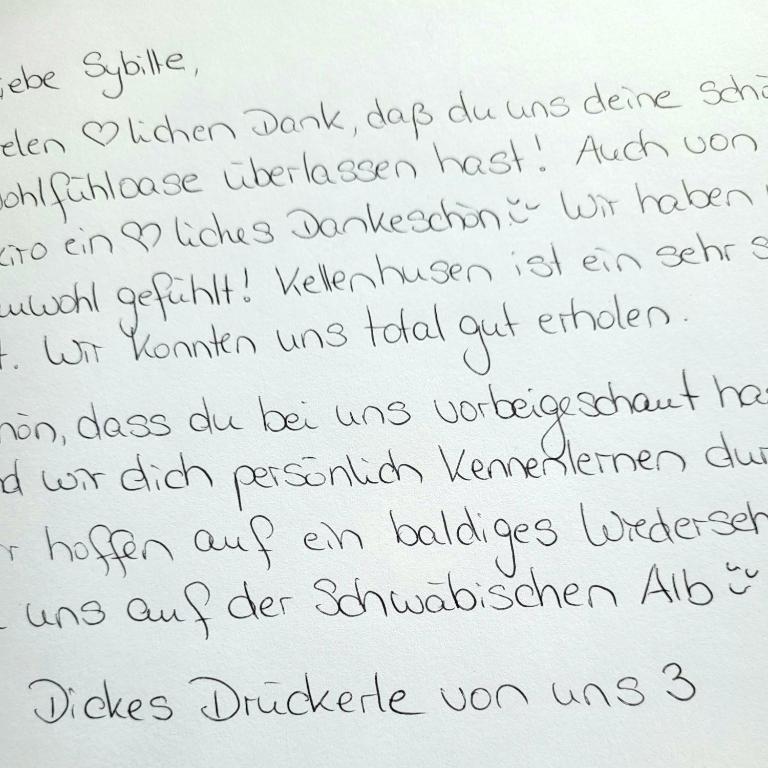 iebe Sybille,
elen ♡lichen Dank, daß du uns deine Schö
ohlfühloase überlassen hast! Auch von
ein ♡liches Dankeschön Wir haben
uwohl gefühlt! Kellenhusen ist ein sehr s
t. Wir konnten uns total gut erholen.
hön, dass du bei uns vorbeigeschaut ha
d wir dich persönlich kennenlernen dur
r hoffen auf ein baldiges Wiederseh
uns auf der Schwäbischen Alb
Dickes Drückerle von uns 3